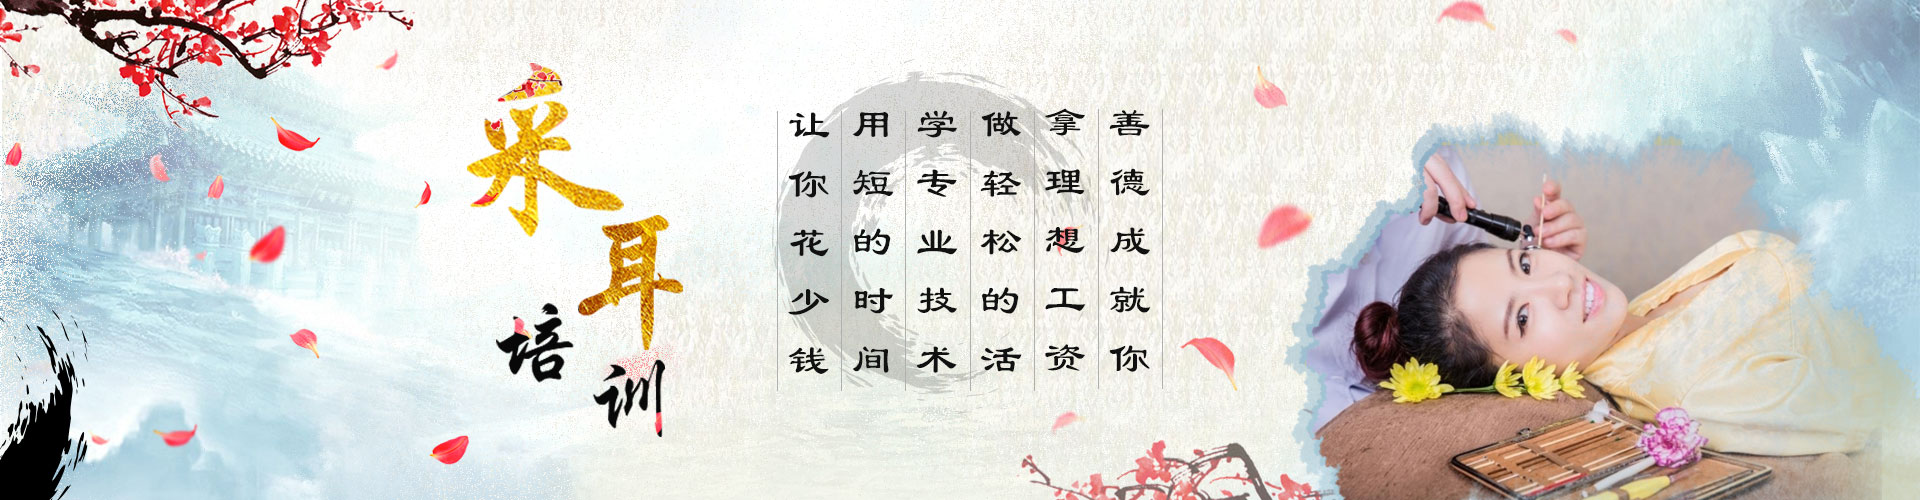 采耳
培训
让你花少钱
用短的时间
学专业技术
做轻松的活
拿理想工资
善德成就你